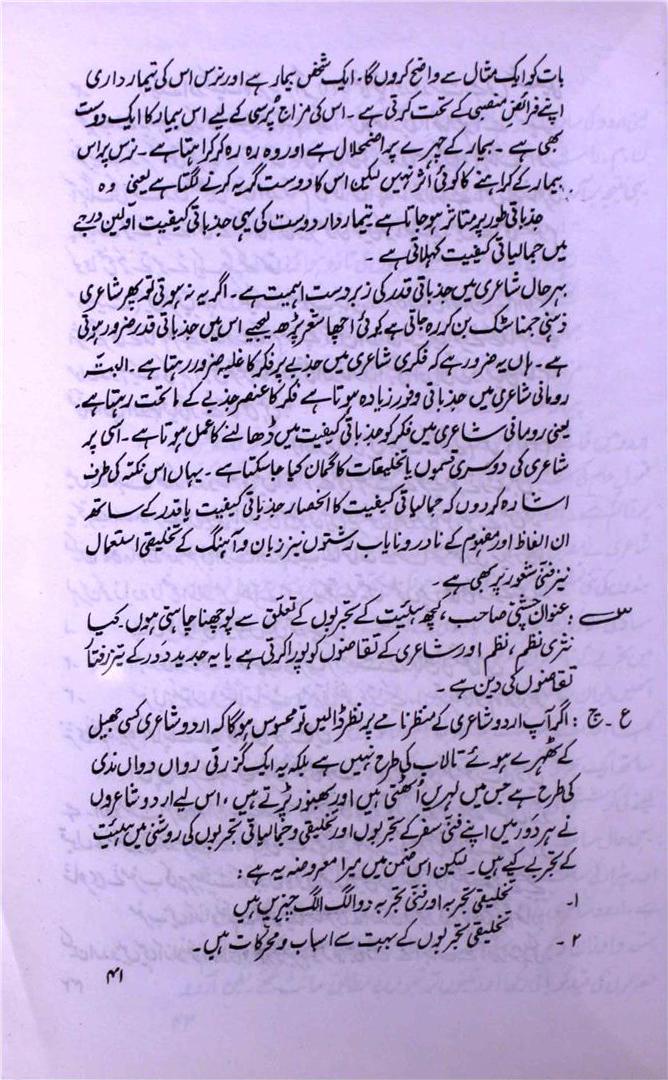 بات کو ایک مثال سے واضح کروں گا۔ ایک شخص بیمار ہے اور نرس اس کی تیمارداری
اپنے فرائضِ منصبی کے تحت کرتی ہے۔ اس کی مزاج پُرسی کے لیے اس بیمار کا ایک دوست
بھی ہے۔ بیمار کے چہرے پر اضمحلال ہے اور وہ رہ رہ کر کراہتا ہے۔ نرس پر اس
بیمار کے کراہنے کا کوئی اثر نہیں لیکن اس کا دوست گریہ کرنے لگتا ہے یعنی وہ
جذباتی طور پر متاثر ہو جاتا ہے تیماردار دوست کی یہی جذباتی کیفیت اوّلین درجے
میں جمالیاتی کیفیت کہلاتی ہے۔
بہرحال شاعری میں جذباتی قدر کی زبردست اہمیت ہے۔ اگر یہ نہ ہوتی تو پھر شاعری
ذہنی جمناسٹک بن کر رہ جاتی ہے کوئی اچھا شعر پڑھ لیجیے اس میں جذباتی قدر ضرور ہوتی
ہے۔ ہاں یہ ضرور ہے کہ فکری شاعری میں جذبے پر فکر کا غلبہ ضرور رہتا ہے۔ البتہ
رومانی شاعری میں جذباتی وفور زیادہ ہوتا ہے فکر کا عنصر جذبے کے ماتحت رہتا ہے۔
یعنی رومانی شاعری میں فکر کو جذباتی کیفیت میں ڈھالنے کا عمل ہوتا ہے۔ اسی پر
شاعری کی دوسری قسموں یا تخلیقات کا گمان کیا جا سکتا ہے۔ یہاں اس نکتہ کی طرف
اشارہ کر دوں کہ جمالیاتی کیفیت کا انحصار جذباتی کیفیت یا قدر کے ساتھ
ان الفاظ اور مفہوم کے نادر و نایاب رشتوں نیز زبان و آہنگ کے تخلیقی استعمال
نیز فنّی شعور پر بھی ہے۔
س : عنوان چشتی صاحب، کچھ ہیئت کے تجربوں کے تعلق سے پوچھنا چاہتی ہوں۔ کیا
نثری نظم، نظم اور شاعری کے تقاضوں کو پورا کرتی ہے یا یہ جدید دَور کے تیز رفتار
تقاضوں کی دین ہے۔
ع۔چ : اگر آپ اردو شاعری کے منظر نامے پر نظر ڈالیں تو محسوس ہوگا کہ اردو شاعری کسی جھیل
کے ٹھہرے ہوئے تالاب کی طرح نہیں ہے بلکہ یہ ایک گزرتی رواں دواں ندی
کی طرح ہے جس میں لہریں اُٹھتی ہیں اور بھنور پڑتے ہیں، اس لیے اردو شاعروں
نے ہر دَور میں اپنے فنّی سفر کے تجربوں اور تخلیقی و جمالیاتی تجربوں کی روشنی میں ہیئت
کے تجربے کیے ہیں۔ لیکن اس ضمن میں میرا معروضہ یہ ہے :
۱۔ تخلیقی تجربہ اور فنّی تجربہ دو الگ الگ چیزیں ہیں
۲۔ تخلیقی تجربوں کے بہت سے اسباب و محرّکات ہیں۔
۴۱